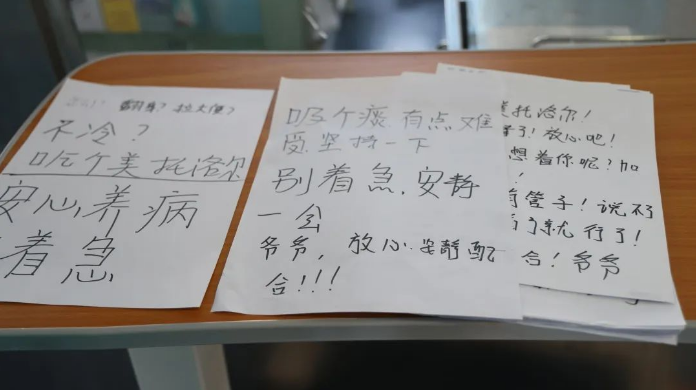 翻身？拉大便？
不冷？
吃个美托洛尔
安心养病
着急
吸个痰 有点难
受,坚持一下
别着急,安静
一会
爷爷，放心安静配
合!!!
美托洛尔!
子! 放心吧!
想着你呢? 加
!
管子! 说不
了就行了!
合! 爷爷